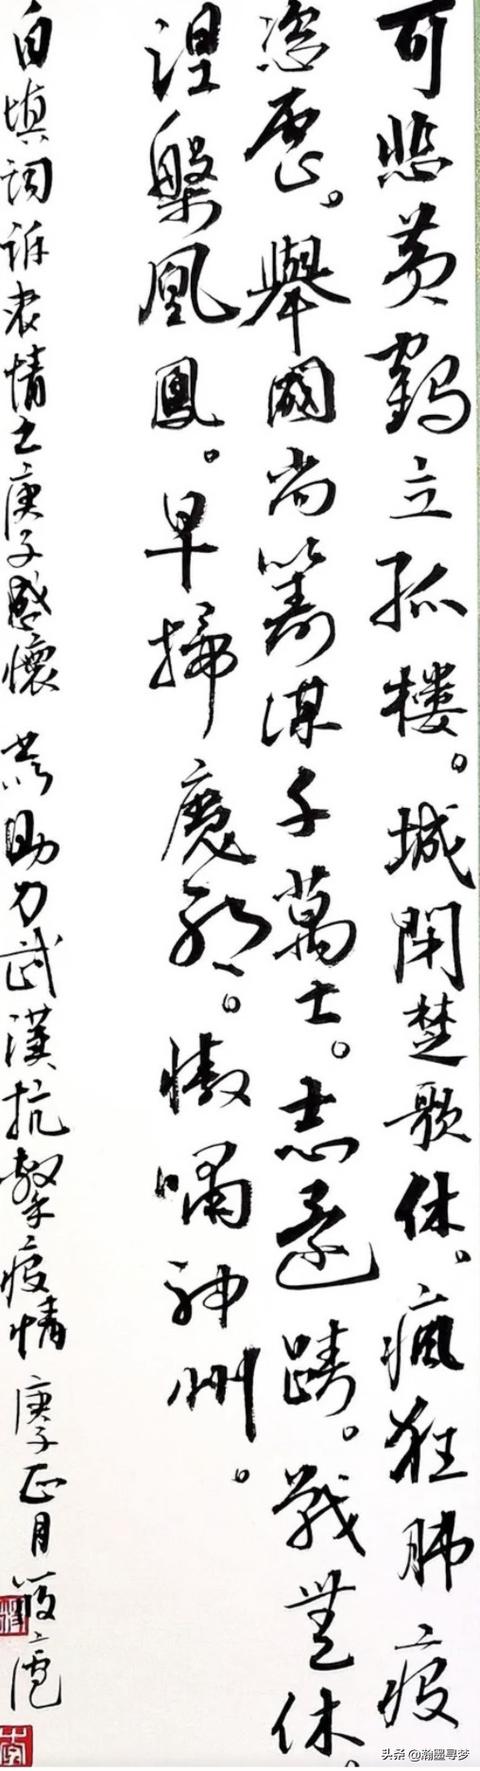 可悲黄鶴立孤楼。城閉楚歌休。瘋狂肺疫
恣虐。舉國尚籌謀千萬士。志躊。戰無休。
涅槃凰鳳。早掃魔邪。傲嘯神州。
自填詞訴衷情之庚子感懷 為助力武漢抗擊疫情 庚子正月
头条 @瀚墨寻梦